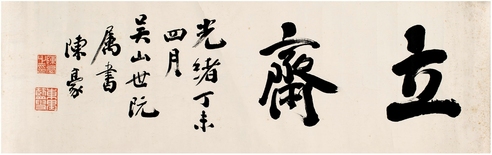 立齋
光緒丁未
四月
吴山世阮
属書
陳豪